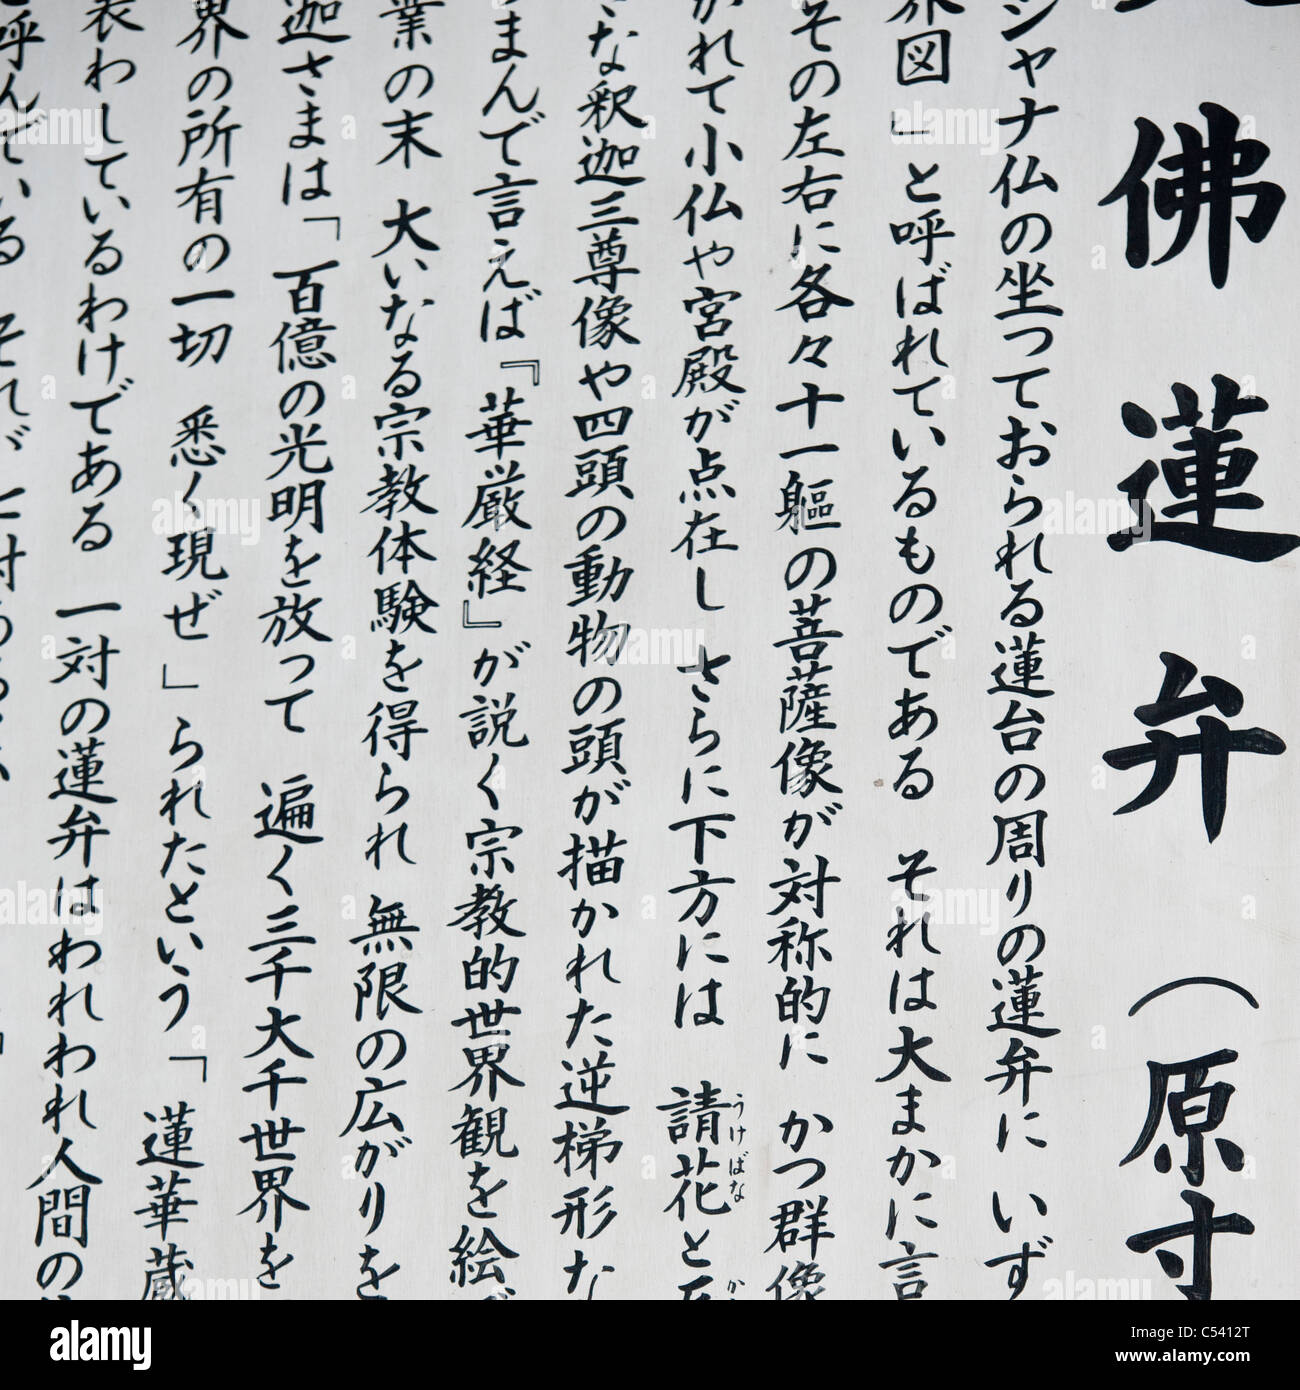 佛蓮弁（原寸
シャナ仏の坐っておられる蓮台の周りの蓮弁に いず
界図」と呼ばれているものである それは大まかに言
その左右に各々十一軀の菩薩像が対称的に かつ群像
かれて小仏や宮殿が点在し さらに下方には 請花と
うけばな
さな釈迦三尊像や四頭の動物の頭が描かれた逆梯形な
まんで言えば『華厳経』が説く宗教的世界観を絵
業の末 大いなる宗教体験を得られ 無限の広がりを
迦さまは「百億の光明を放って 遍く三千大千世界を
界の所有の一切 悉く現ぜ」られたという「蓮華蔵
表わしているわけである 一対の蓮弁はわれわれ人間の
呼んでいる それが
alamy
C5412T
www.alamy.com